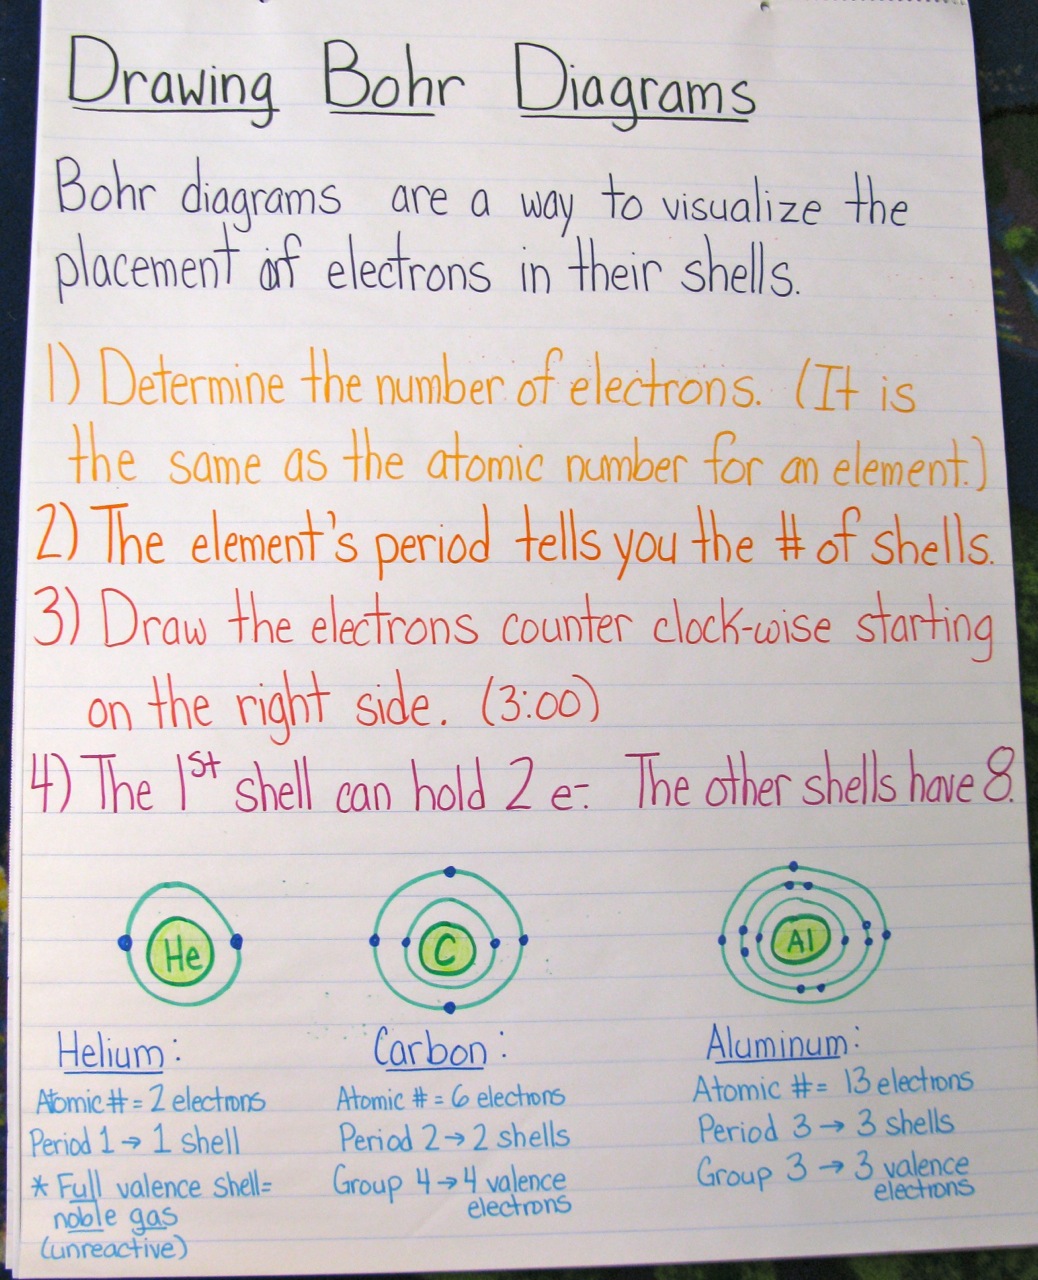 Drawing Bohr Diagrams
Bohr diagrams are a way to visualize the
placement of electrons in their shells.
1) Determine the number of electrons. (It is
the same as the atomic number for an element.)
2) The element's period tells you the # of shells.
3) Draw the electrons counter clock-wise starting
on the right side. (3:00)
4) The 1st shell can hold 2 e-. The other shells have 8.
He
C
Al
Helium:
Atomic # = 2 electrons
Period 1 → 1 shell
* Full valence shell=
noble gas
(unreactive)
Carbon:
Atomic # = 6 electrons
Period 2 → 2 shells
Group 4 → 4 valence
electrons
Aluminum:
Atomic # = 13 electrons
Period 3 → 3 shells
Group 3 → 3 valence
electrons